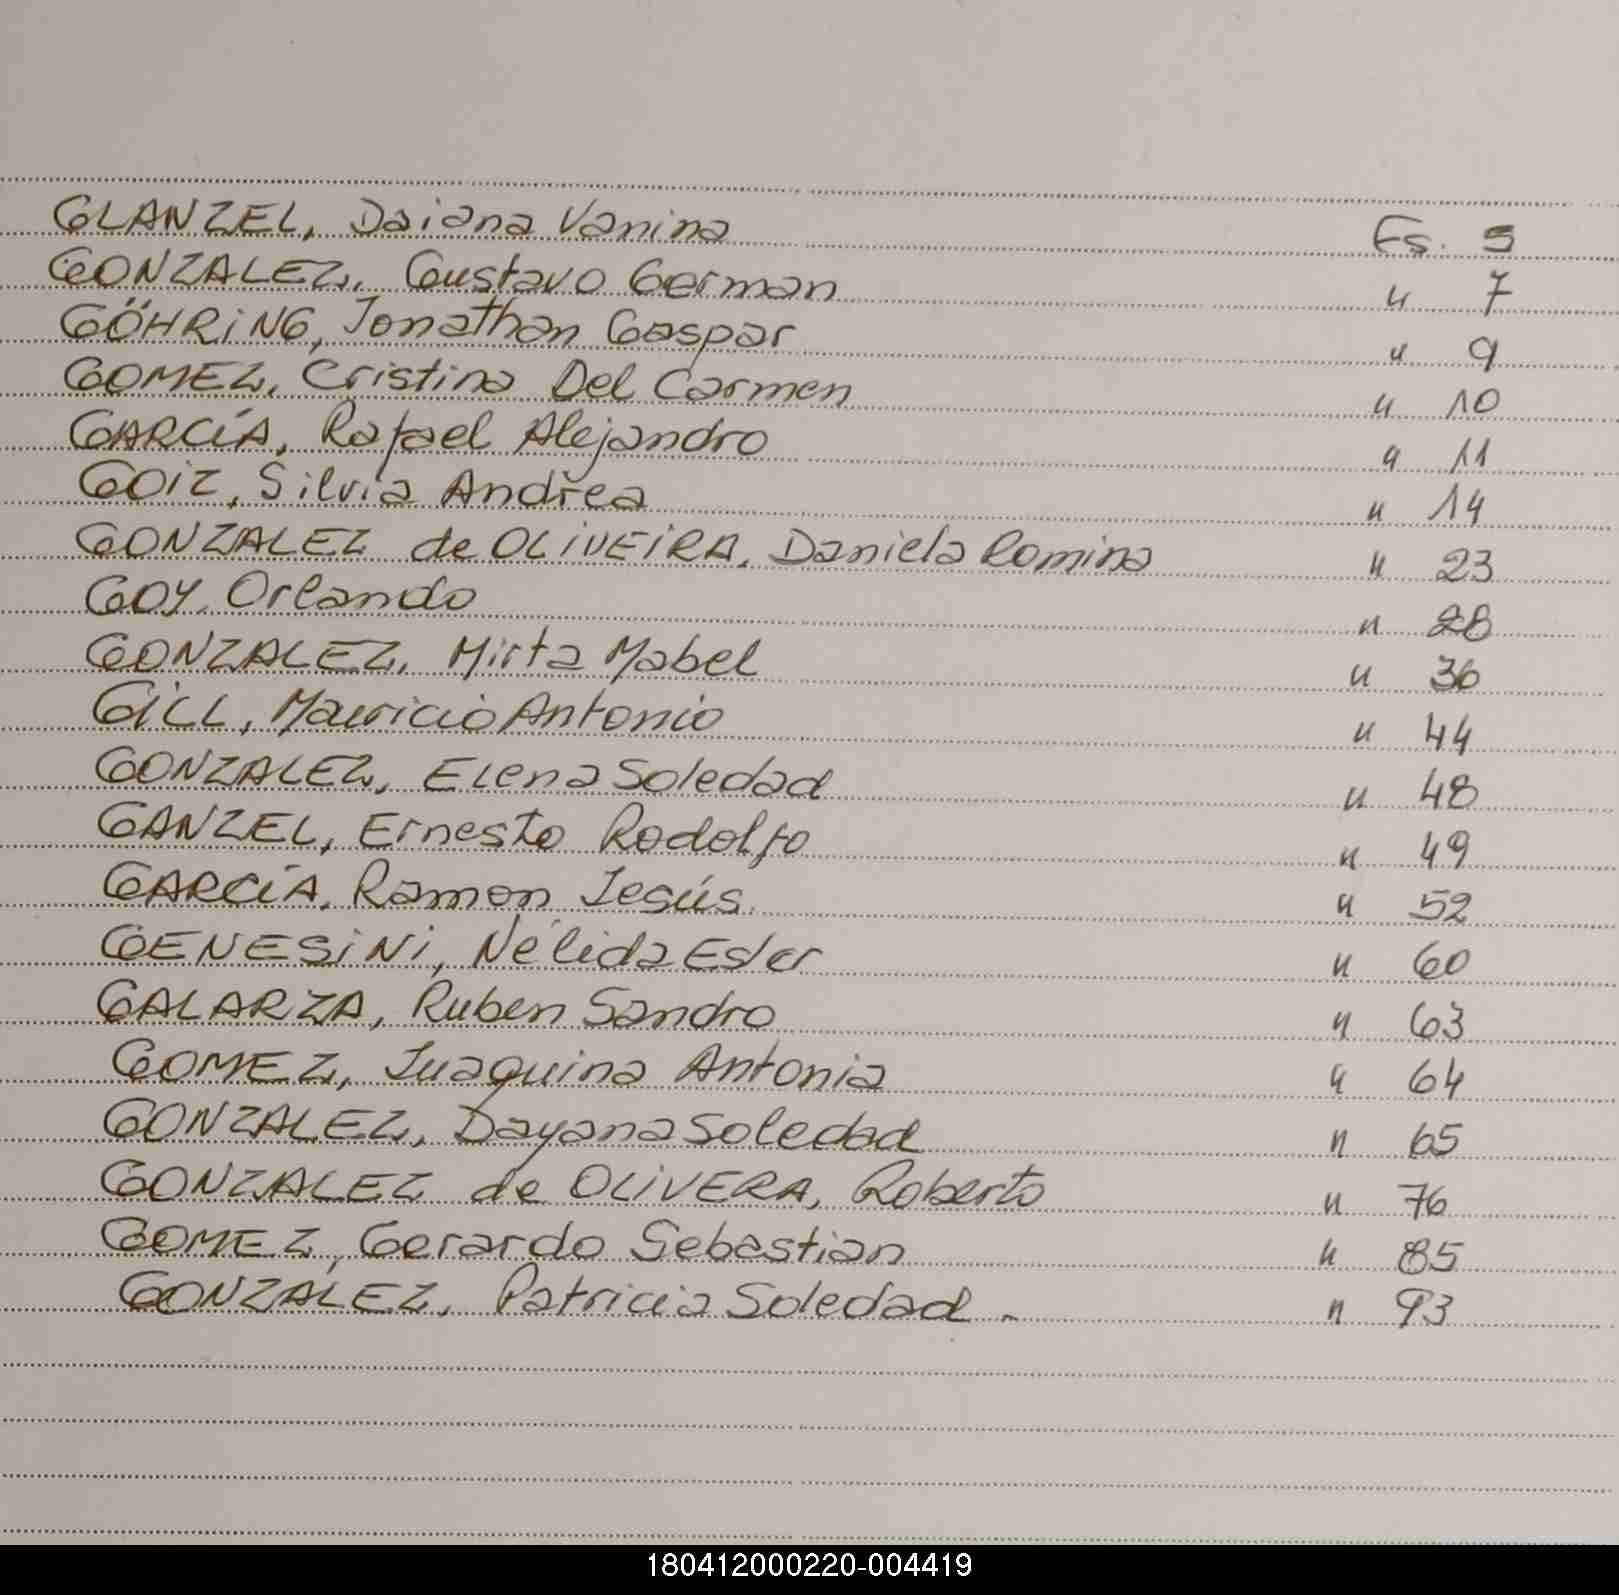 GLANZEL, Daiana Vanina Fs. 5
GONZALEZ, Gustavo German " 7
GÖHRiNG, Jonathan Gaspar " 9
GOMEZ, Cristina Del Carmen " 10
GARCíA, Rafael Alejandro " 11
GOiZ, Silvia Andrea " 14
GONZALEZ de OLiVEiRA, Daniela Romina " 23
GOY, Orlando " 28
GONZALEZ, Mirta Mabel " 36
GiLL, Mauricio Antonio " 44
GONZALEZ, Elena Soledad " 48
GANZEL, Ernesto Rodolfo " 49
GARCíA, Ramon Jesús. " 52
GENESiNi, Nélida Ester " 60
GALARZA, Ruben Sandro " 63
GOMEZ, Juaquina Antonia " 64
GONZALEZ, Dayana Soledad " 65
GONZALEZ de OLiVERA, Roberto " 76
GOMEZ, Gerardo Sebastian " 85
GONZALEZ, Patricia Soledad - " 93
180412000220-004419